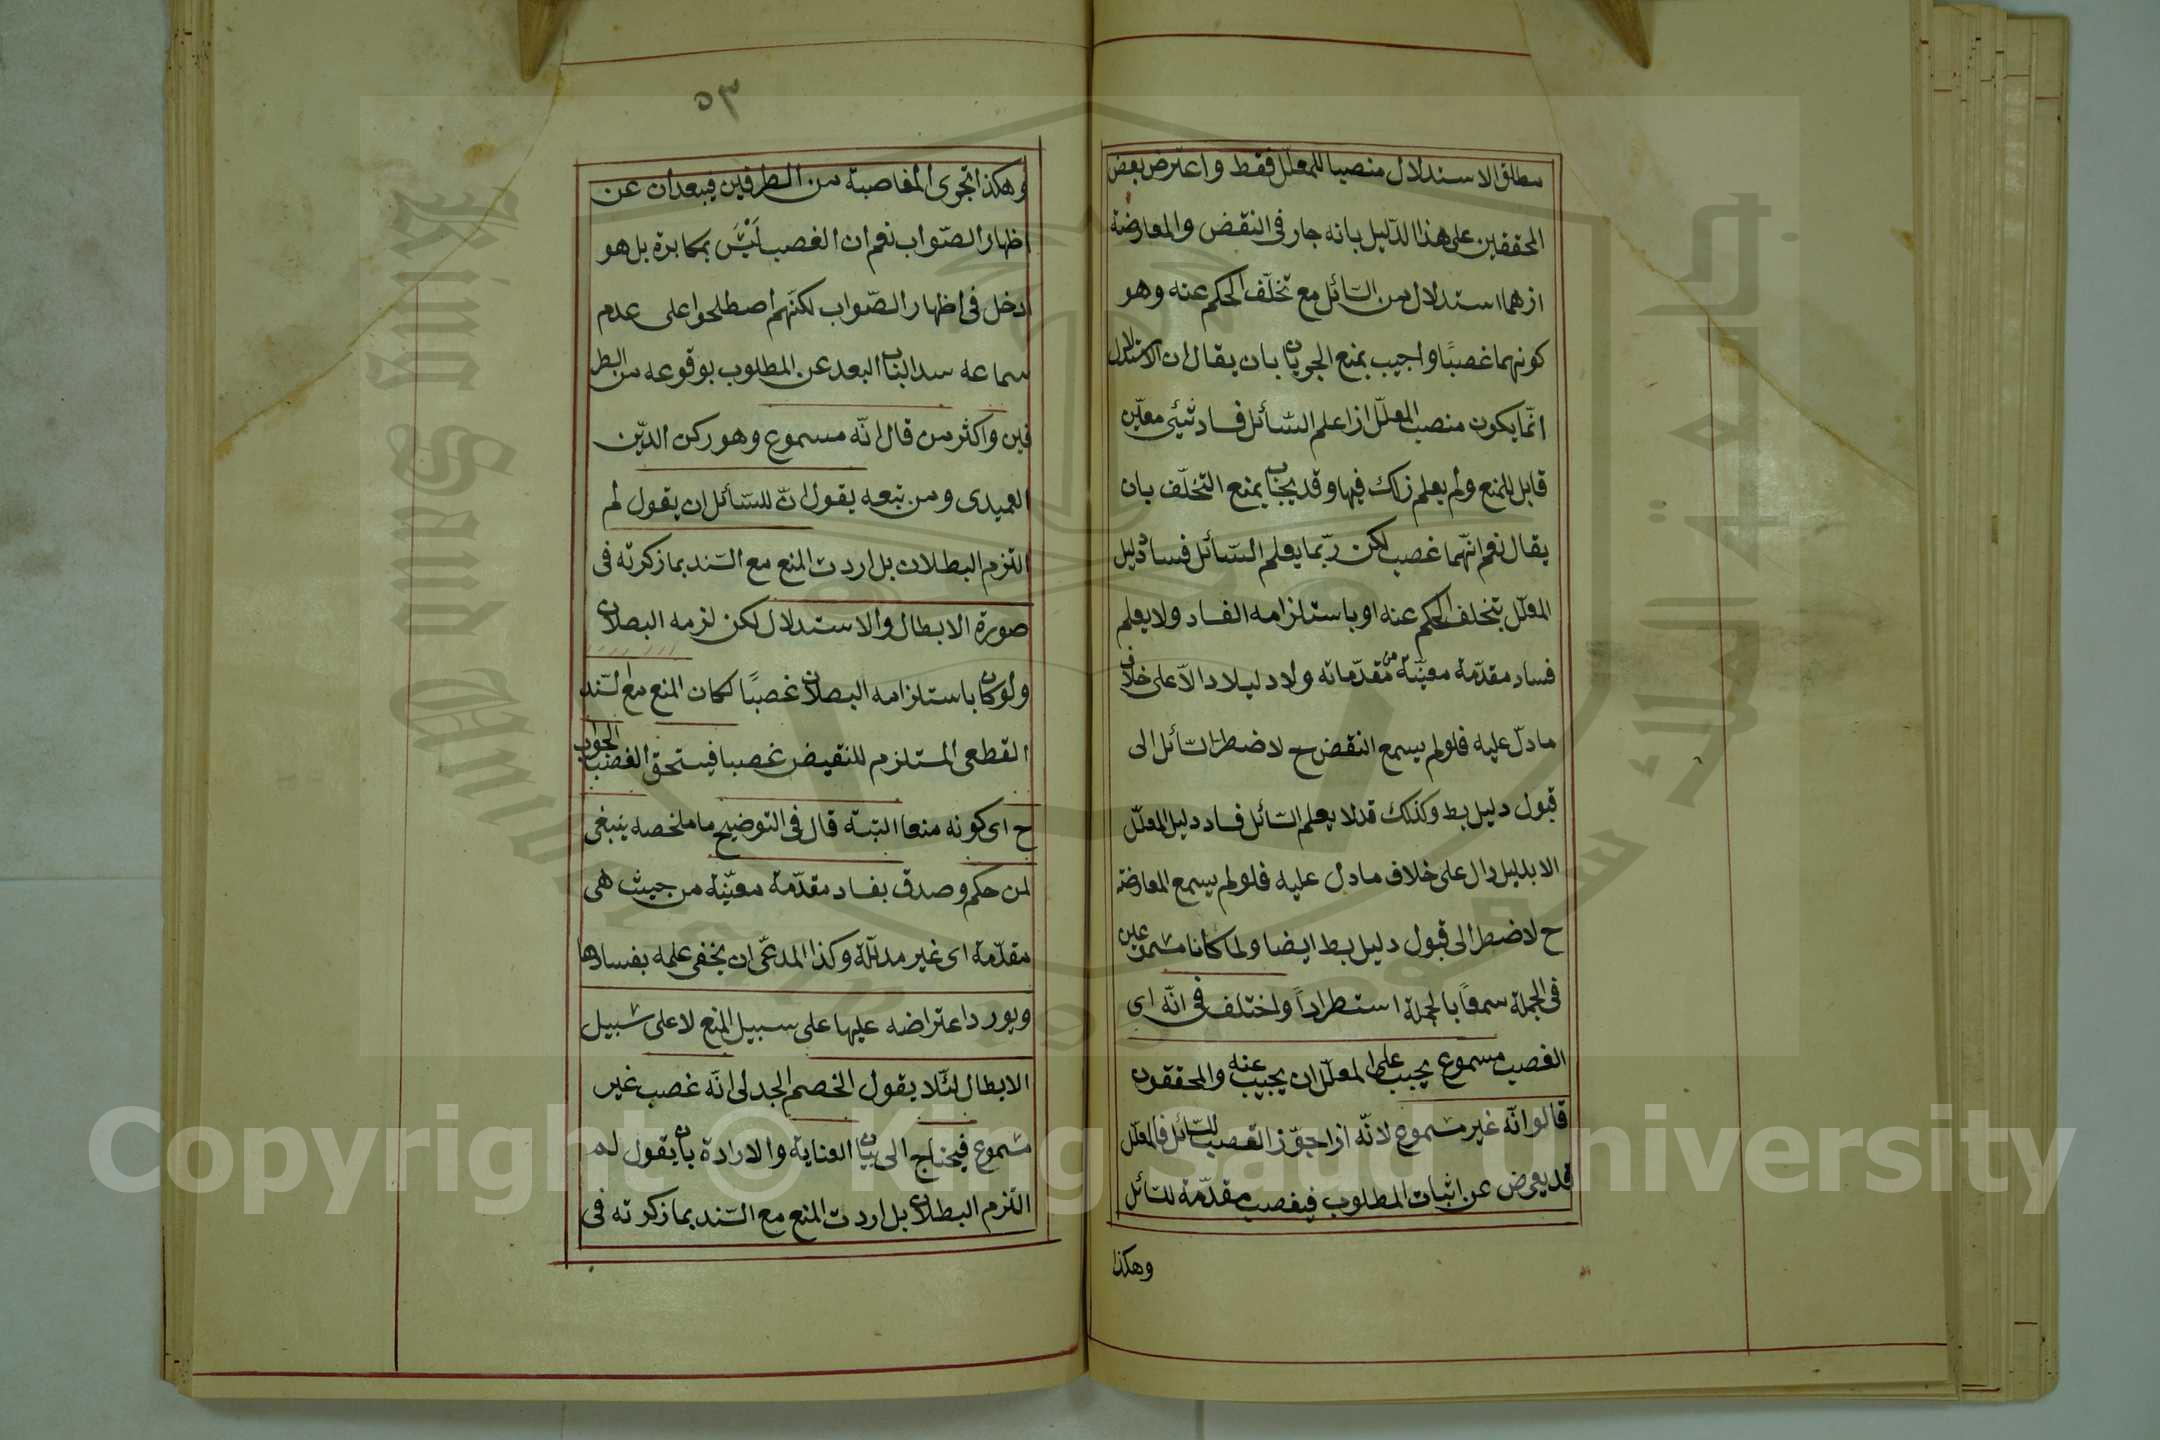 مطلق الاستدلال منصبا للمعلّل فقط واعترض بعض
المحققين على هذا الدّليل بانه جار فى النقض والمعارضة
اذهما استدلال من السّائل مع تخلّف الحكم عنه وهو
كونهما غصبًا واجيب بمنع الجريان بان يقال ان الاستدلال
انّما يكون منصب المعلّل اذا علم السّائل فساد شئ معيّن
قابل للمنع ولم يعلم ذلك فيها وقد يجاب بمنع التخلّف بان
يقال نعم انّهما غصب لكن ربّما يعلم السّائل فساد دليل
المعلّل بتخلف الحكم عنه او باستلزامه الفساد ولا يعلم
فساد مقدّمة معيّنة من مقدّماته ولا دليلا دالّا على خلاف
ما دلّ عليه فلو لم يسمع النقض ح لاضطرّ السّائل الى
قبول دليل بط وكذلك قد لا يعلم السّائل فساد دليل المعلّل
الا بدليل دال على خلاف ما دل عليه فلو لم يسمع المعارضة
ح لاضطر الى قبول دليل بط ايضا ولما كانا مسموعين
فى الجملة سمعًا بالجملة استطرادًا واختلف فى انّه اى
الغصب مسموع يجب على المعلّل ان يجيب عنه والمحققون
قالوا انّه غير مسموع لانّه اذا جوّز الغصب للسّائل فالمعلّل
قد يعرض عن اثبات المطلوب فيغصب مقدّمة للسّائل
وهكذا
٥٣
وهكذا تجرى المغاصبة من الطرفين فيبعدان عن
اظهار الصّواب نعم ان الغصب ليس بمكابرة بل هو
ادخل فى اظهار الصّواب لكنّهم اصطلحوا على عدم
سماعه سد الباب البعد عن المطلوب بوقوعه من الطر
فين واكثر من قال انّه مسموع وهو ركن الدّين
العميدى ومن تبعه يقول انّ للسّائل ان يقول لم
التزم البطلان بل اردت المنع مع السّند بما ذكرته فى
صورة الابطال والاستدلال لكن لزمه البطلان
ولو كان باستلزامه البطلان غصبًا لكان المنع مع السّند
القطعى المستلزم للنقيض غصبا فيستحق الغصب الجواب
ح اى كونه منعا البتّة قال فى التوضيح ما ملخصه ينبغى
لمن حكم وصدق بفساد مقدّمة معيّنة من حيث هى
مقدّمة اى غير مدلّلة وكذا المدعّى ان يخفى علمه بفسادها
ويورد اعتراضه عليها على سبيل المنع لا على سبيل
الابطال لئلّا يقول الخصم الجدلى انّه غصب غير
مسموع فيحتاج الى بيان العناية والارادة بان يقول لم
التزم البطلان بل اردت المنع مع السّند بما ذكرته فى
King Saud University
Copyright © King Saud University